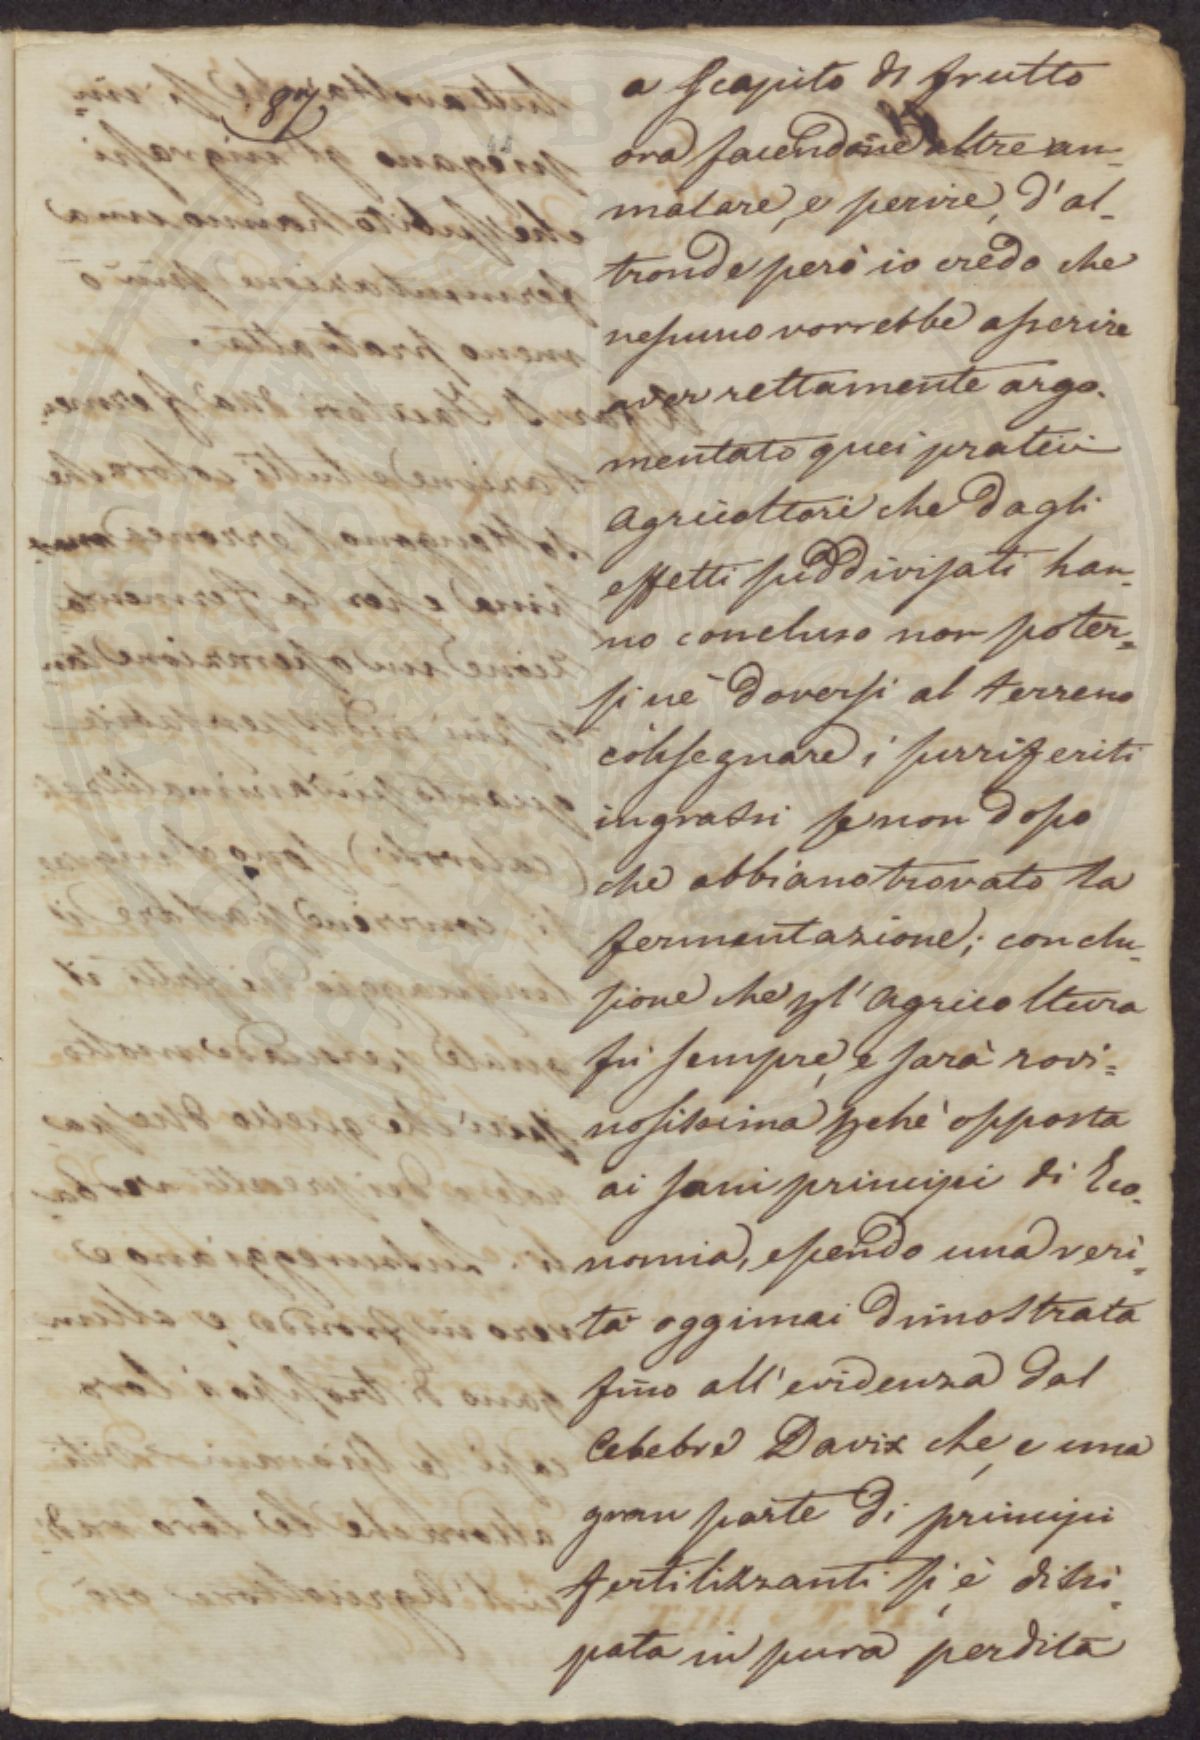 a scapito di frutto
ora facendone altre am-
malare, e perire, d'al-
tronde però io credo che
nessuno vorrebbe asserire
aver rettamente argo-
mentato quei pratici
agricoltori che dagli
effetti suddivisati han-
no concluso non poter-
si nè doversi al terreno
consegnare i surriferiti
ingrassi se non dopo
che abbiano trovato la
fermentazione; conclu-
sione che pl' agricoltura
fù sempre, e sarà rovi-
nosissima pchè opposta
ai sani principi di Eco-
nomia, essendo una veri-
tà oggimai dimostrata
fino all'evidenza dal
Celebre Davix che, e una
gran parte di principi
fertilizzanti si è dissi-
pata in pura perdita